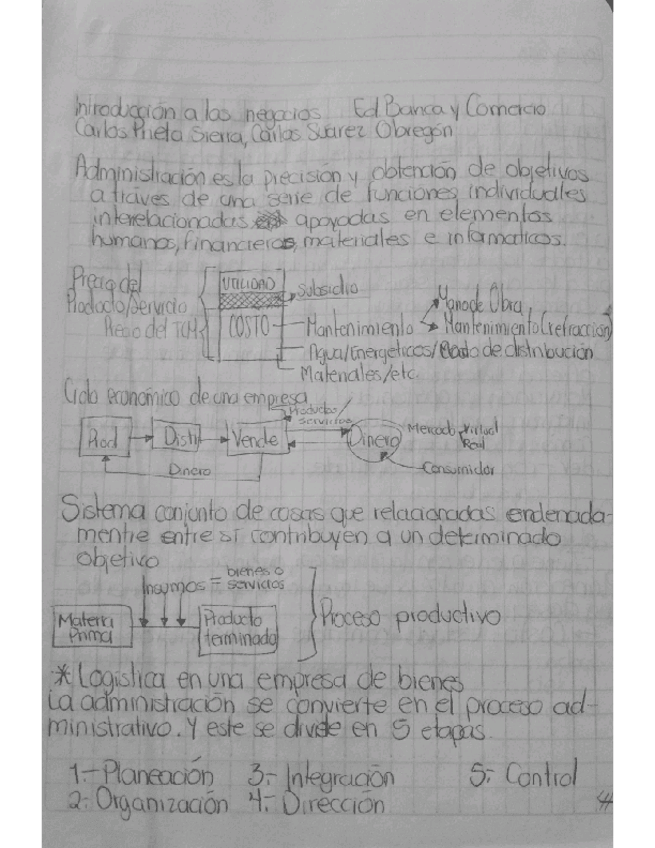 Introducción a los negocios Ed Banca y Comercio
Carlos Prieto Sierra, Carlos Suárez Obregón
Administración es la precisión y obtención de objetivos
a través de una serie de funciones individuales
interrelacionadas apoyadas en elementos
humanos, financieros, materiales e informaticos.
Precio del
Producto/Servicio
UTILIDAD
Subsidio
COSTO
Mantenimiento
Mano de Obra
Mantenimiento (refracción)
Agua/Energeticos/ de distribución
Materiales/etc.
Ciclo económico de una empresa
Productos/
servicios
Prod
Distri
Vende
Dinero
Mercado virtual
Real
Dinero
Consumidor
Sistema conjunto de cosas que relacionadas endenada-
mentre entre sí contribuyen a un determinado
objetivo
Insumos = bienes o
servicios
Materia
Prima
Producto
terminado
Proceso productivo
*Logistica en una empresa de bienes
La administración se convierte en el proceso ad-
ministrativo. Y este se divide en 5 etapas
1.- Planeación 3.- Integración 5.- Control
2.- Organización 4.- Dirección